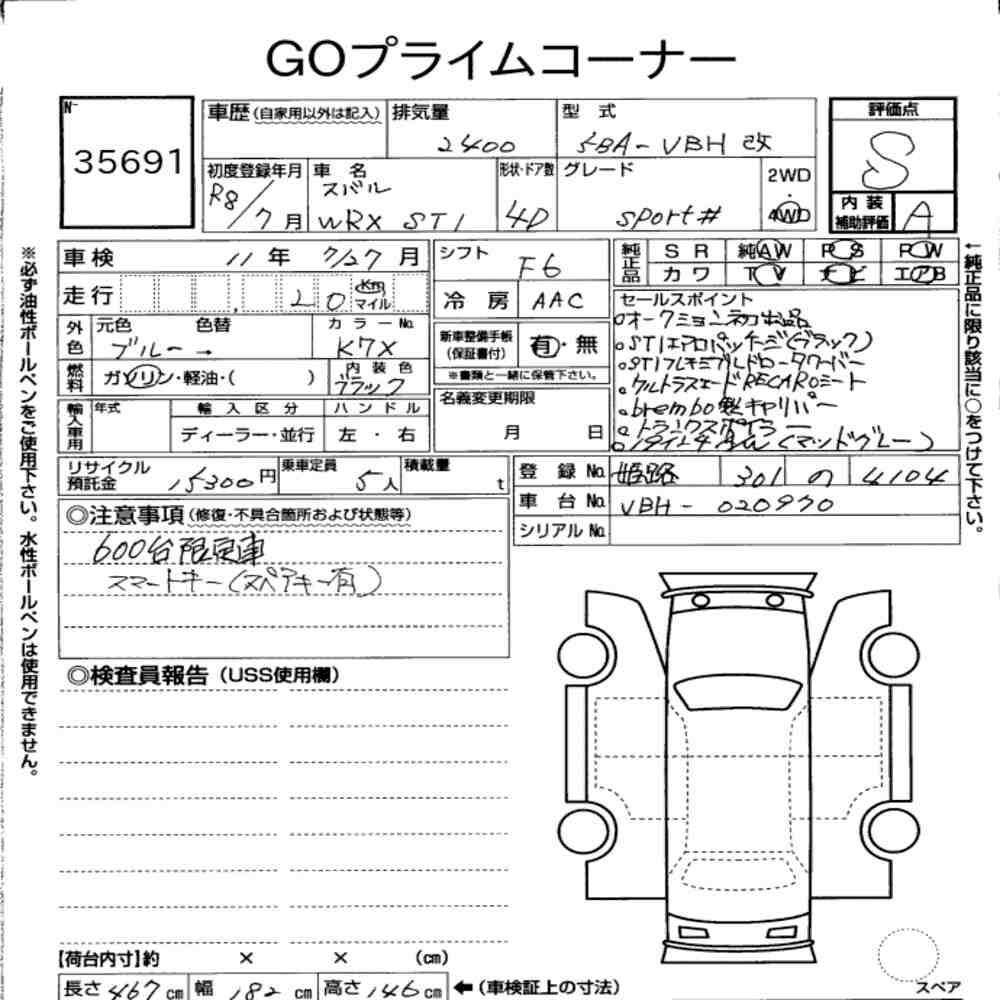 GOプライムコーナー
No
35691
車歴(自家用以外は記入)
排気量
2400
型式
5BA-VBH 改
評価点
S
初度登録年月
R8/7月
車名
スバル
WRX STI
形状・ドア数
4D
グレード
sport#
2WD
4WD
内装
補助評価
A
車検
11年 7/27月
シフト
F6
純正品
SR 純AW PS PW
カワ TV ナビ エアB
走行
20
Km
マイル
冷房
AAC
外色
元色
ブルー→
色替
カラーNo.
K7X
新車整備手帳
(保証書付)
有・無
※書類と一緒に保管下さい。
燃料
ガソリン・軽油・( )
内装色
ブラック
輸入車用
年式
輸入区分
ディーラー・並行
ハンドル
左・右
名義変更期限
月 日
セールスポイント
○オークション初出品
○STIエアロパッケージ(ブラック)
○STIフレキシブルドロータワーバー
○ウルトラスエードRECAROシート
○brembo製キャリパー
○トランクスポイラー
(マットグレー)
リサイクル
預託金
15300円
乗車定員
5人
積載量
t
登録No.
姫路 301 の 4104
車台No.
VBH-020970
シリアルNo.
◎注意事項(修復・不具合箇所および状態等)
600台限定車
スマートキー(スペアキー有)
◎検査員報告(USS使用欄)
【荷台内寸】約 × × (cm)
長さ 467 cm 幅 182 cm 高さ 146 cm ←(車検証上の寸法)
スペア
※必ず油性ボールペンをご使用下さい。水性ボールペンは使用できません。
←純正品に限り該当に○をつけて下さい。